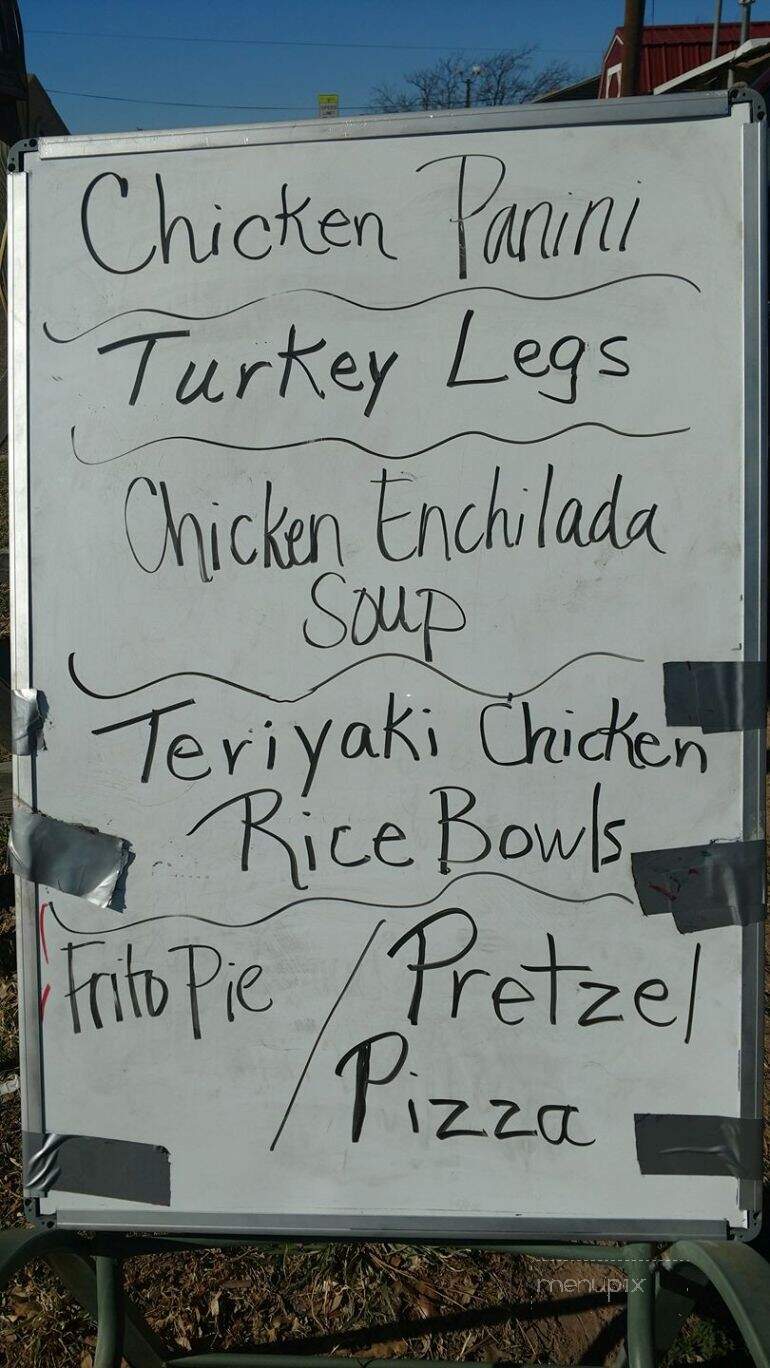 Chicken Panini
Turkey Legs
Chicken Enchilada
Soup
Teriyaki Chicken
Rice Bowls
Frito Pie / Pretzel
Pizza
menupix